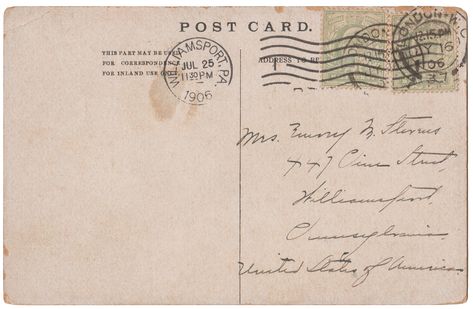 POST CARD.
THIS PART MAY BE USED
FOR CORRESPONDENCE
FOR INLAND USE ONLY
ADDRESS TO BE
WILLIAMSPORT, PA.
JUL 25
11 30 PM
1906
LONDON. W.C.
12.15 PM
16
06
Mrs. Emory M. Stevens
447 Pine Street,
Williamsport,
Pennsylvania.
United States of America